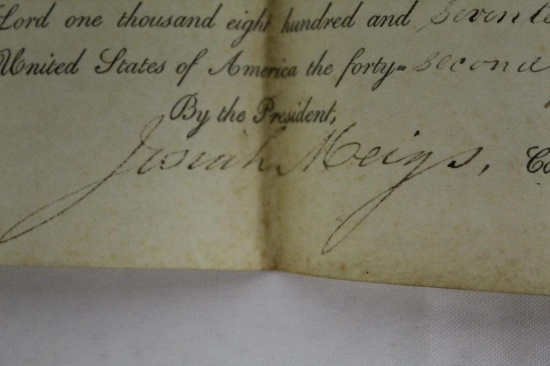 Lord one thousand eight hundred and
United States of America the forty-second
By the President,
Josiah Meigs,